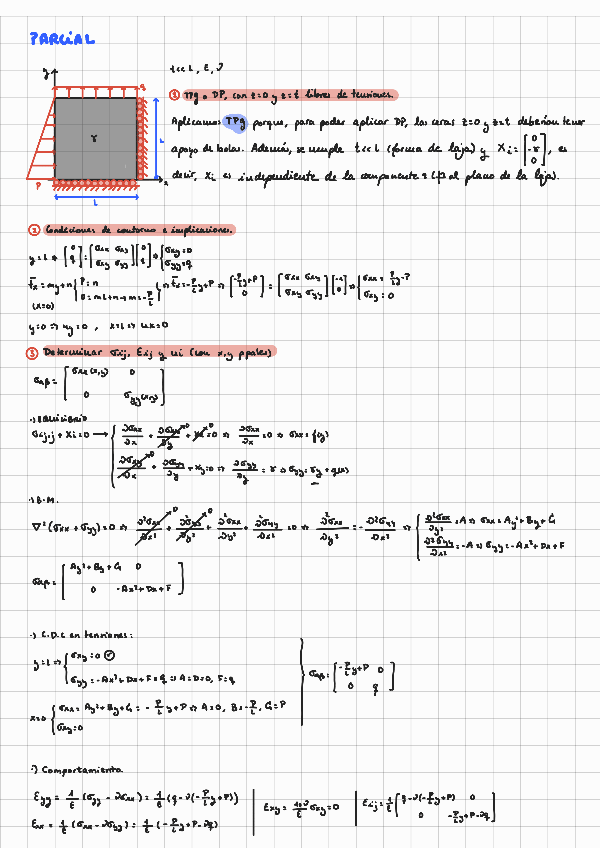 PARCIAL
y
t<<L, E, ν
q
① TPg o DP, con z=0 y z=t libres de tensiones.
Aplicamos TPg porque, para poder aplicar DP, las caras z=0 y z=t deberían tener
apoyo de bolas. Además, se cumple t<<L (forma de laja) y Xi = [0 -γ 0], es
decir, Xi es independiente de la componente z
γ
L
P
x
L
② Condiciones de contorno e implicaciones.
y=L → [0 q] = [σxx σxy σxy σyy][0 1] {σxy=0 σyy=q
t̄x = my+n {P=n 0=mL+n → m=-P/L} t̄x=-P/L y+P ⇒ [-P/L y+P 0] = [σxx σxy σxy σyy][-1 0] ⇒ {σxx = P/L y-P σxy=0
(x=0)
y=0 ⇒ uy=0, x=L ⇒ ux=0
③ Determinar σij, Eij y ui (con x,y ppales)
σαβ = [σxx(x,y) 0 0 σyy(x,y)]
·) EQUILIBRIO
σij,j + Xi=0 → {∂σxx/∂x + ∂σxy/∂y + Xx=0 ⇒ ∂σxx/∂x=0 ⇒ σxx=f(y)
∂σxy/∂x + ∂σyy/∂y + Xy=0 ⇒ ∂σyy/∂y = γ ⇒ σyy=γy+g(x)
·) B.M.
∇²(σxx+σyy)=0 ⇒ ∂²σxx/∂x² + ∂²σyy/∂y² + ∂²σxx/∂y² + ∂²σyy/∂x² =0 ⇒ ∂²σxx/∂y² = -∂²σyy/∂x² ⇒ {∂²σxx/∂y²=A ⇒ σxx=Ay²+By+G
∂²σyy/∂x²=-A ⇒ σyy=-Ax²+Dx+F
σαβ = [Ay²+By+G 0 0 -Ax²+Dx+F]
·) C.D.C en tensiones:
y=L ⇒ {σxy=0 ✓
σyy=-Ax²+Dx+F=q ⇒ A=D=0, F=q
σαβ = [-P/L y+P 0 0 q]
x=0 {σxx=Ay²+By+G=-P/L y+P ⇒ A=0, B=-P/L, G=P
σxy=0
·) Comportamiento.
Eyy = 1/E (σyy - νσxx) = 1/E (q-ν(-P/L y+P))
Exx = 1/E (σxx-νσyy) = 1/E (-P/L y+P-νq)
Exy = 1+ν/E σxy=0
Eij = 1/E [q-ν(-P/L y+P) 0 0 -P/L y+P-νq]